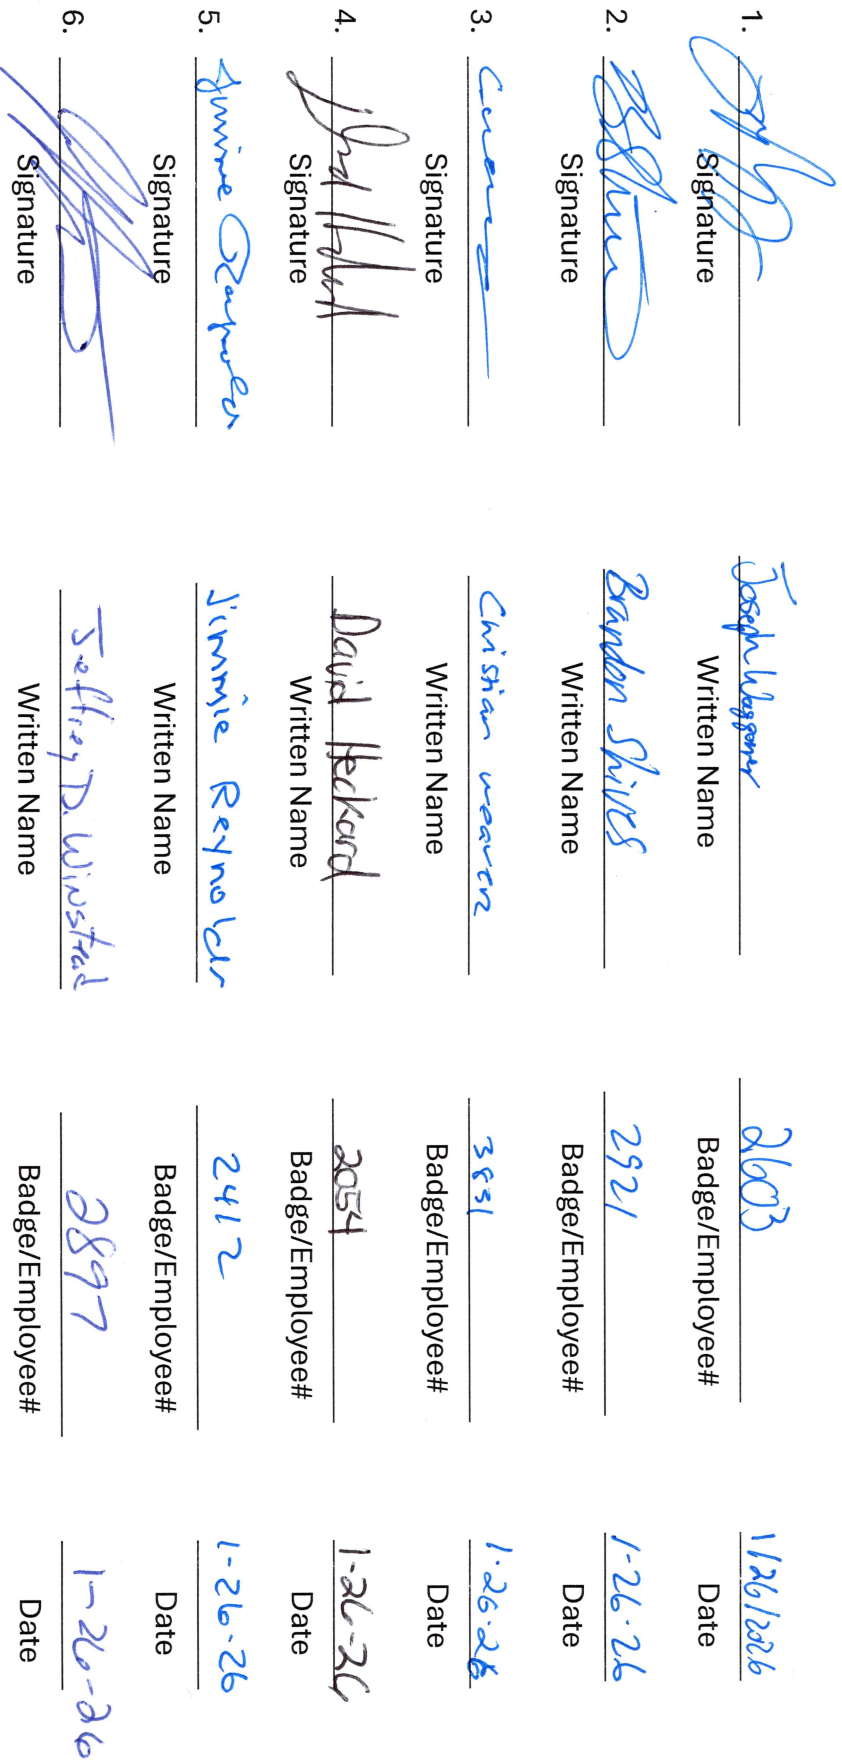 1. Joseph Waggoner 2603 1/26/2026
Signature Written Name Badge/Employee# Date
2. Brandon Shives 2921 1-26-26
Signature Written Name Badge/Employee# Date
3. Christian weaver 3831 1-26-26
Signature Written Name Badge/Employee# Date
4. David Heckard 2054 1-26-26
Signature Written Name Badge/Employee# Date
5. Jimmie Reynolds Jimmie Reynolds 2412 1-26-26
Signature Written Name Badge/Employee# Date
6. Jeffrey D. Winstead 2897 1-26-26
Signature Written Name Badge/Employee# Date